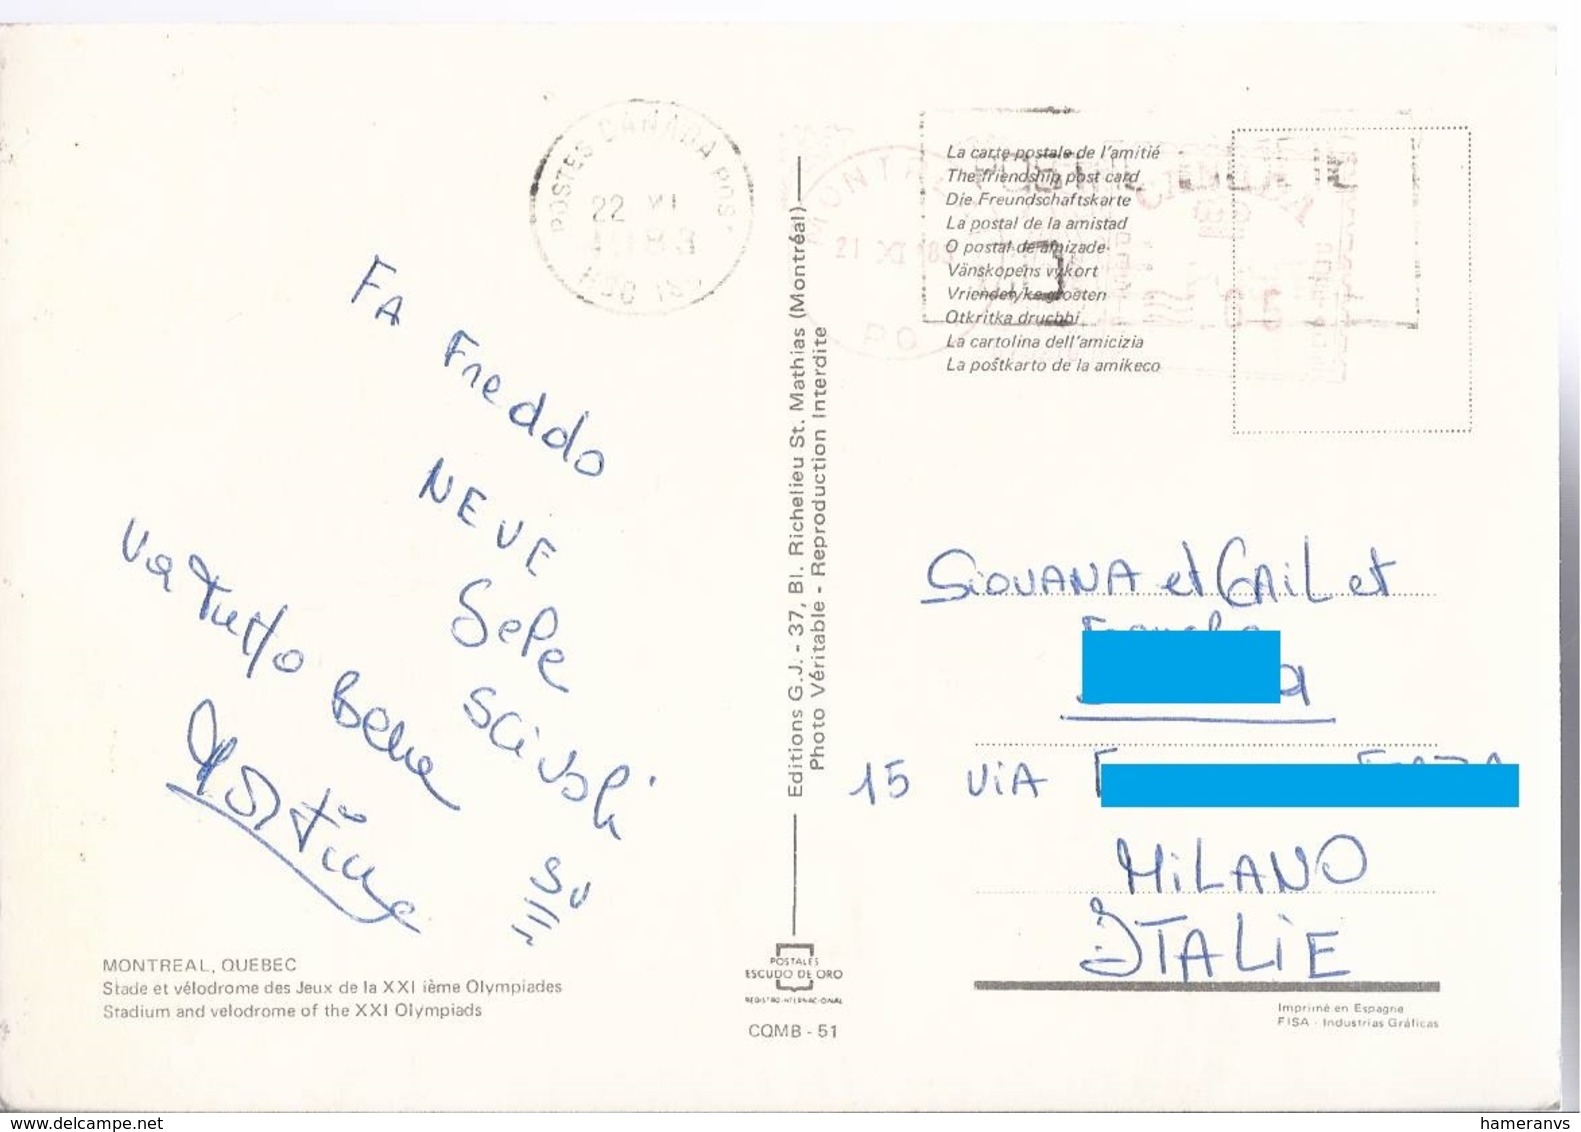 POSTES CANADA POST
22 XI
1983
MONTR
21 XI 83
PQ
05
La carte postale de l'amitié
The friendship post card
Die Freundschaftskarte
La postal de la amistad
O postal de amizade
Vänskopens vykort
Vriendelyke groeten
Otkritka druchbi
La cartolina dell'amicizia
La poŝtkarto de la amikeco
FA Freddo
NEVE
Gele
SCivoli
SU
Va Tutto Bene
Editions G.J. - 37, Bl. Richelieu St. Mathias (Montréal)
Photo Véritable - Reproduction Interdite
GiOVANA et GAiL et
15 ViA
MiLANO
ITALiE
MONTREAL, QUEBEC
Stade et vélodrome des Jeux de la XXI ième Olympiades
Stadium and velodrome of the XXI Olympiads
POSTALES
ESCUDO DE ORO
REGISTRO INTERNACIONAL
CQMB - 51
Imprimé en Espagne
FISA - Industrias Gráficas
delcampe.net
hameranvs